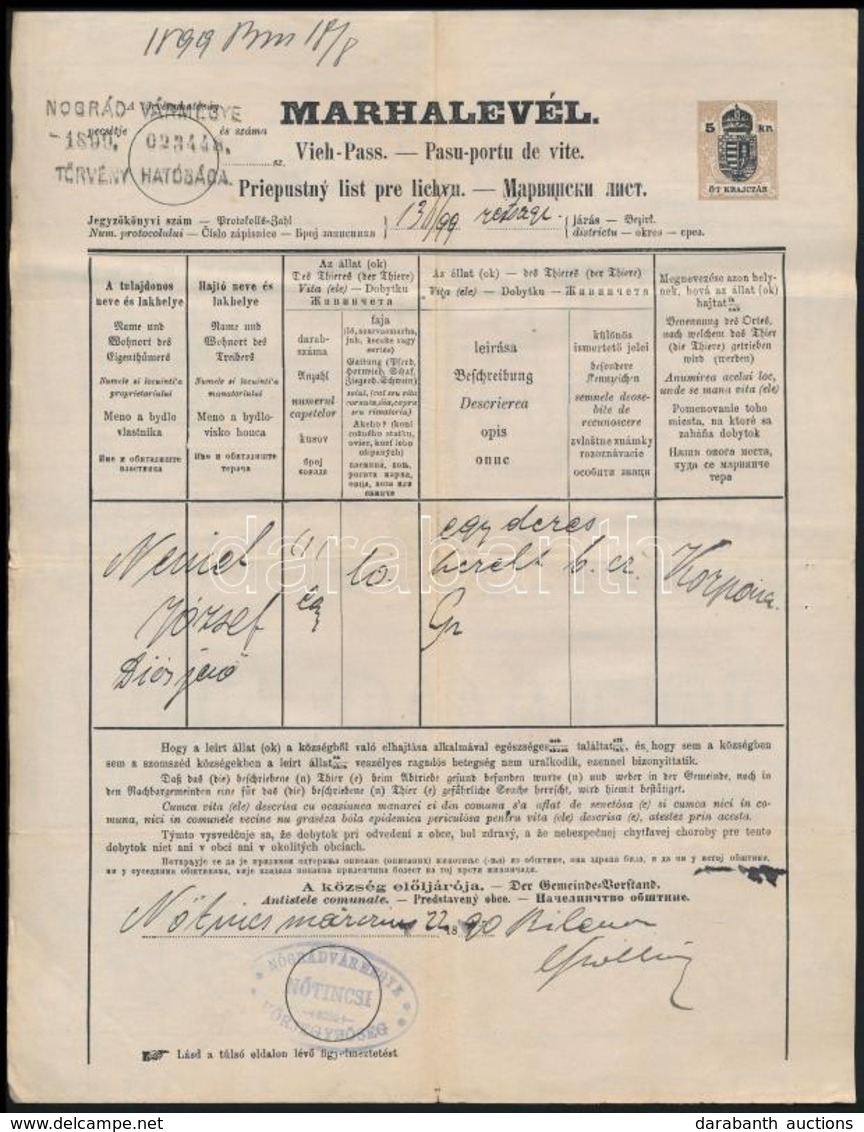 1899
NOGRÁD VÁRMEGYE
A törvényhatóság
pecsétje és száma
1890. 023448.
sz.
TÖRVÉNY HATÓSÁGA.
MARHALEVÉL.
Vieh-Pass. — Pasu-portu de vite.
Priepustný list pre lichvu. — Марвински лист.
5 kr.
ÖT KRAJCZÁR
Jegyzőkönyvi szám — Protokolls-Zahl
Num. protocolului — Číslo zápisnice — Број записника
járás — Bezirk.
districtu — okres — срез.
A tulajdonos
neve és lakhelye
Name und
Wohnort des
Eigenthümers
Numele si locuinti'a
proprietariului
Meno a bydlo
vlastníka
Име и обиталиште
власника
Hajtó neve és
lakhelye
Name und
Wohnort des
Treibers
Numele si locuinti'a
manatoriului
Meno a bydlo-
visko honca
Име и обиталиште
терача
Az állat (ok)
Des Thieres (der Thiere)
Vita (ele) — Dobytku
Живинчета
darab-
száma
Anzahl
numerul
capetelor
kusov
број
комада
faja
(ló, szarvasmarha,
juh, kecske vagy
sertés)
Gattung (Pferd,
Hornvieh, Schaf,
Ziege od. Schwein)
Az állat (ok) — des Thieres (der Thiere)
Vita (ele) — Dobytku — Живинчета
leirása
Beschreibung
Descrierea
opis
опис
különös
ismertető jelei
besondere
Kennzeichen
semnele deose-
bite de
recunoscere
zvláštne známky
rozoznávacie
особити знаци
Megnevezése azon hely-
nek, hová az állat (ok)
hajtat
Benennung des Ortes,
nach welchem das Thier
(die Thiere) getrieben
wird (werden)
Anumirea acelui loc,
unde se mana vita (ele)
Pomenovanie toho
miesta, na ktoré sa
zaháňa dobytok
Назив онога места,
куда се марвинче
тера
József
Diósjenő
egy
ló.
egy deres
herélt
Korpona
Hogy a leirt állat (ok) a községből való elhajtása alkalmával egészséges találtat, és hogy sem a községben
sem a szomszéd községekben a leirt állat veszélyes ragadós betegség nem uralkodik, ezennel bizonyittatik.
Daß das (die) beschriebene (n) Thier (e) beim Abtriebe gesund befunden wurde (n) und weder in der Gemeinde, noch in
den Nachbargemeinden eine für das (die) beschriebene (n) Thier (e) gefährliche Seuche herrscht, wird hiemit bestätiget.
Cumca vita (ele) descrisa cu ocasiunea manarei ei din comuna s'a aflat de senetósa (e) si cumca nici in co-
muna, nici in comunele vecine nu graséza bóla epidemica periculósa pentru vita (ele) descrisa (e), atestez prin acesta.
Týmto vysvedčuje sa, že dobytok pri odvedení z obce, bol zdravý, a že nebezpečnej chytľavej choroby pre tento
dobytok niet ani v obci ani v okolitých obciach.
A község előljárója. — Der Gemeinde-Vorstand.
Antistele comunale. — Predstavený obce. — Начелничтво обштине.
Nőtincs március 22 1890
NÓGRÁDVÁRMEGYE
NŐTINCSI
KÖRJEGYZŐSÉG
Lásd a túlsó oldalon lévő figyelmeztetést
darabanth
www.darabanth.com
darabanth auctions